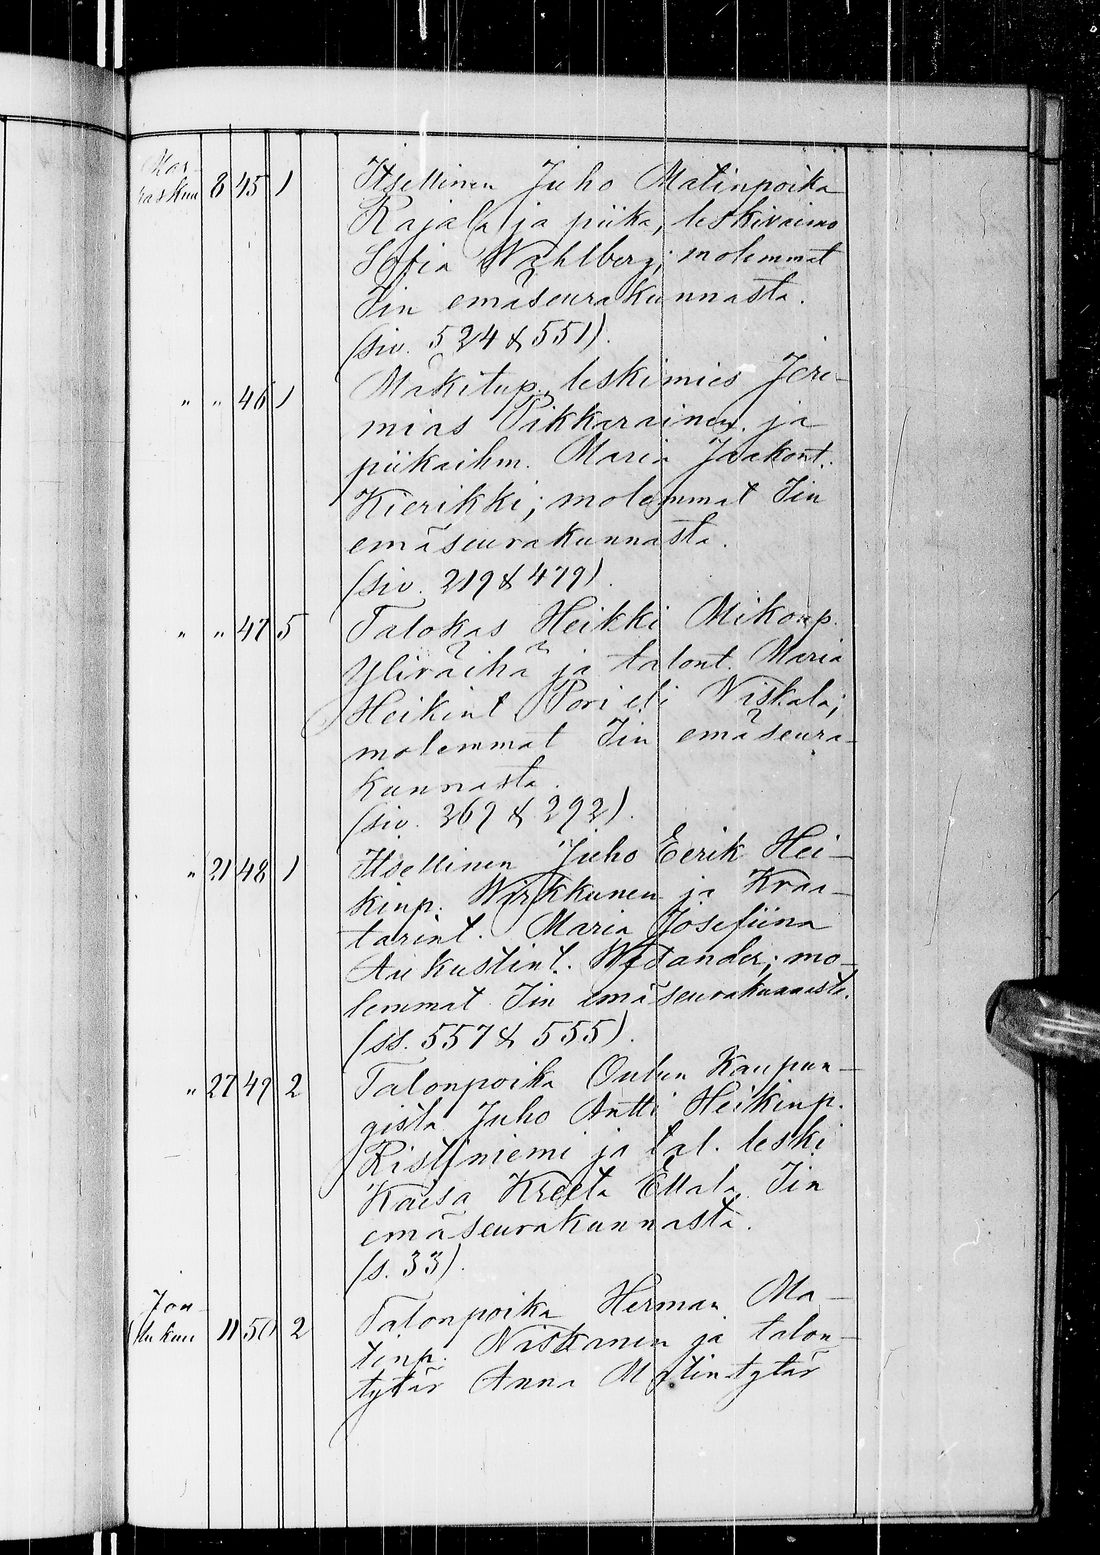 Mar-
raskuu 8 45 1 Itsellinen Juho Matinpoika
Rajala ja piika, leskivaimo
Sofia Wahlberg; molemmat
Iin emäseurakunnasta.
(siv. 524 & 551).
" " 46 1 Mäkitup. leskimies Jere-
mias Pikkarainen ja
piikaihm. Maria Jaakont.
Kierikki; molemmat Iin
emäseurakunnasta.
(siv. 219 & 479).
" " 47 5 Talokas Heikki Mikonp.
Yliväihä ja talont. Maria
Heikint Pori eli Niskala;
molemmat Iin emäseura-
kunnasta.
(siv. 269 & 292).
" 21 48 1 Itsellinen Juho Eerik Hei-
kinp. Wirkkunen ja Kraa-
tarint. Maria Josefiina
Aukustint. ; mo-
lemmat Iin emäseurakunnasta.
(ss. 557 & 555).
" 27 49 2 Talonpoika Oulun Kaupun-
gista Juho Antti Heikinp.
Ristiniemi ja tal. leski
Kaisa Kreeta Ellala Iin
emäseurakunnasta.
(s. 33).
Jou-
lukuu 11 50 2 Talonpoika Herman Ma-
tinp. Niskanen ja talon-
tytär Anna Matintytär